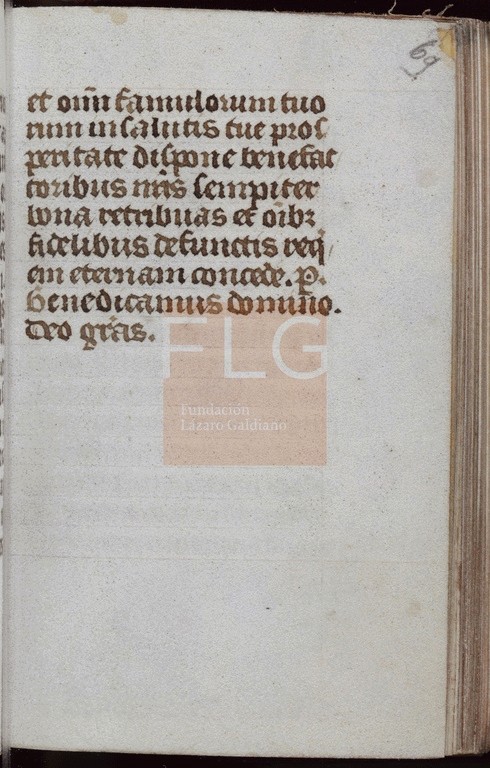 69
et oīm famulorum tuo
rum in salutis tue pros
peritate dispone benefac
toribus nr̄is sempiter
bona retribuas et oībꝫ
fidelibus defunctis req̄
em eternam concede. P.
Benedicamus domino.
Deo gr̄as.
FLG
Fundación
Lázaro Galdiano